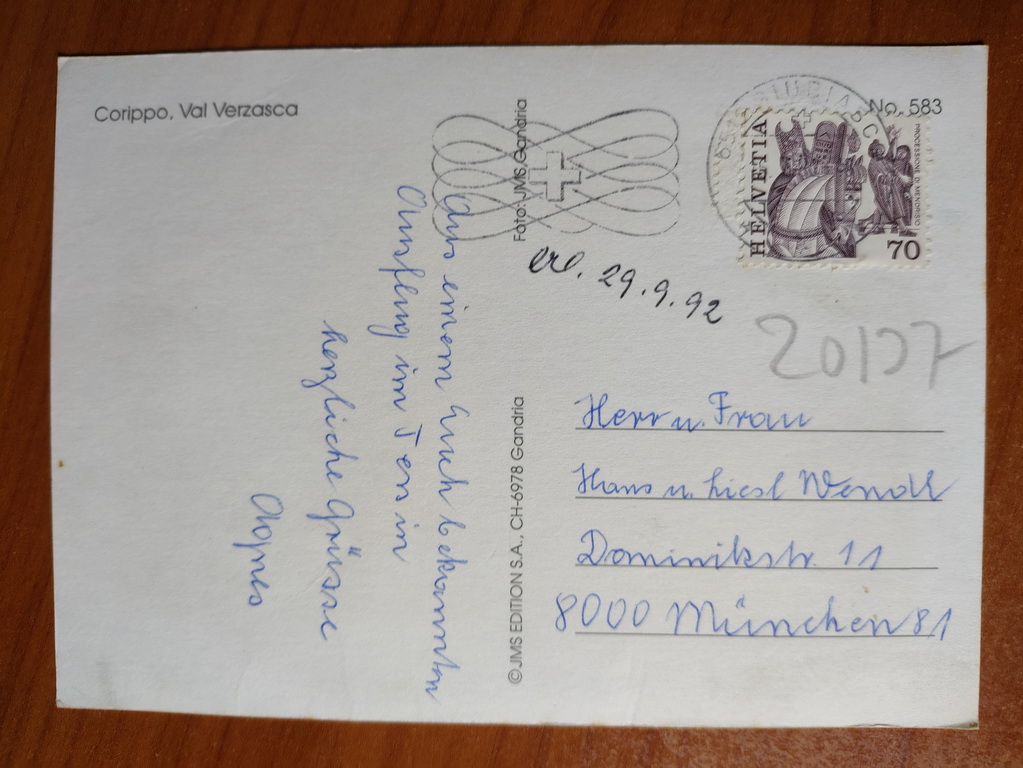 Corippo, Val Verzasca
No. 583
Foto: JMS, Gandria
© JMS EDITION S.A., CH-6978 Gandria
HELVETIA
PROCESSIONE DI MENDRISIO
70
erl. 29.9.92
20137
Aus einem Euch bekannten
Ausflug im Tessin
herzliche Grüsse
Agnes
Herr u. Frau
Hans u. Liesl Wendl
Dominikstr. 11
8000 München 81